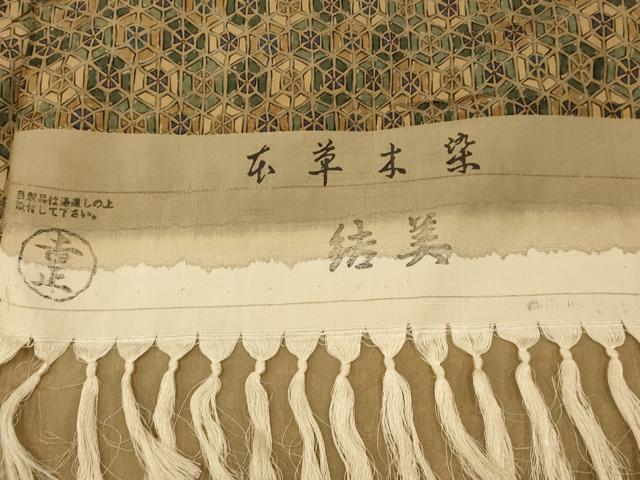 本草木染
当製品は湯通しの上
染付して下さい。
結美